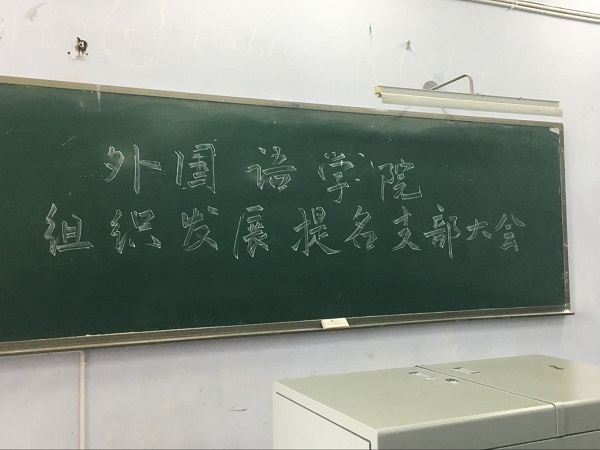 外国语学院
组织发展提名支部大会